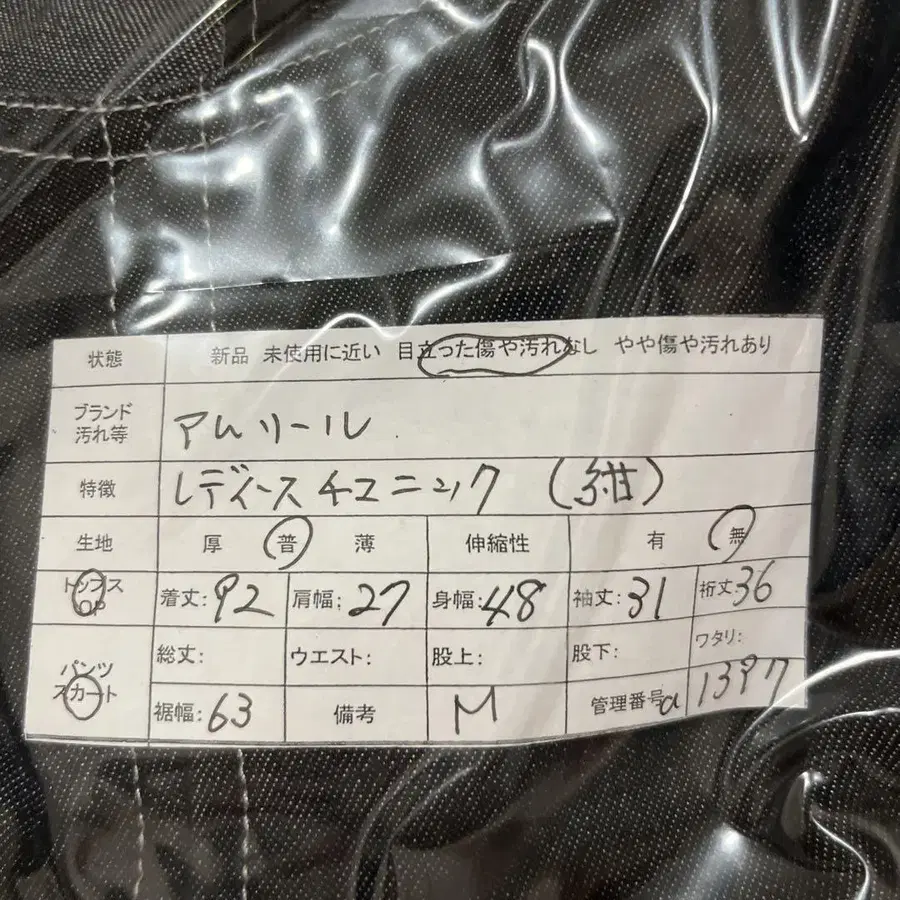 状態 新品 未使用に近い 目立った傷や汚れなし やや傷や汚れあり
ブランド
汚れ等 アムリール
特徴 レディース チュニック (紺)
生地 厚 普 薄 伸縮性 有 無
トップス
OP 着丈:92 肩幅:27 身幅:48 袖丈:31 裄丈36
パンツ
スカート 総丈: ウエスト: 股上: 股下: ワタリ:
裾幅:63 備考 M 管理番号a 1397